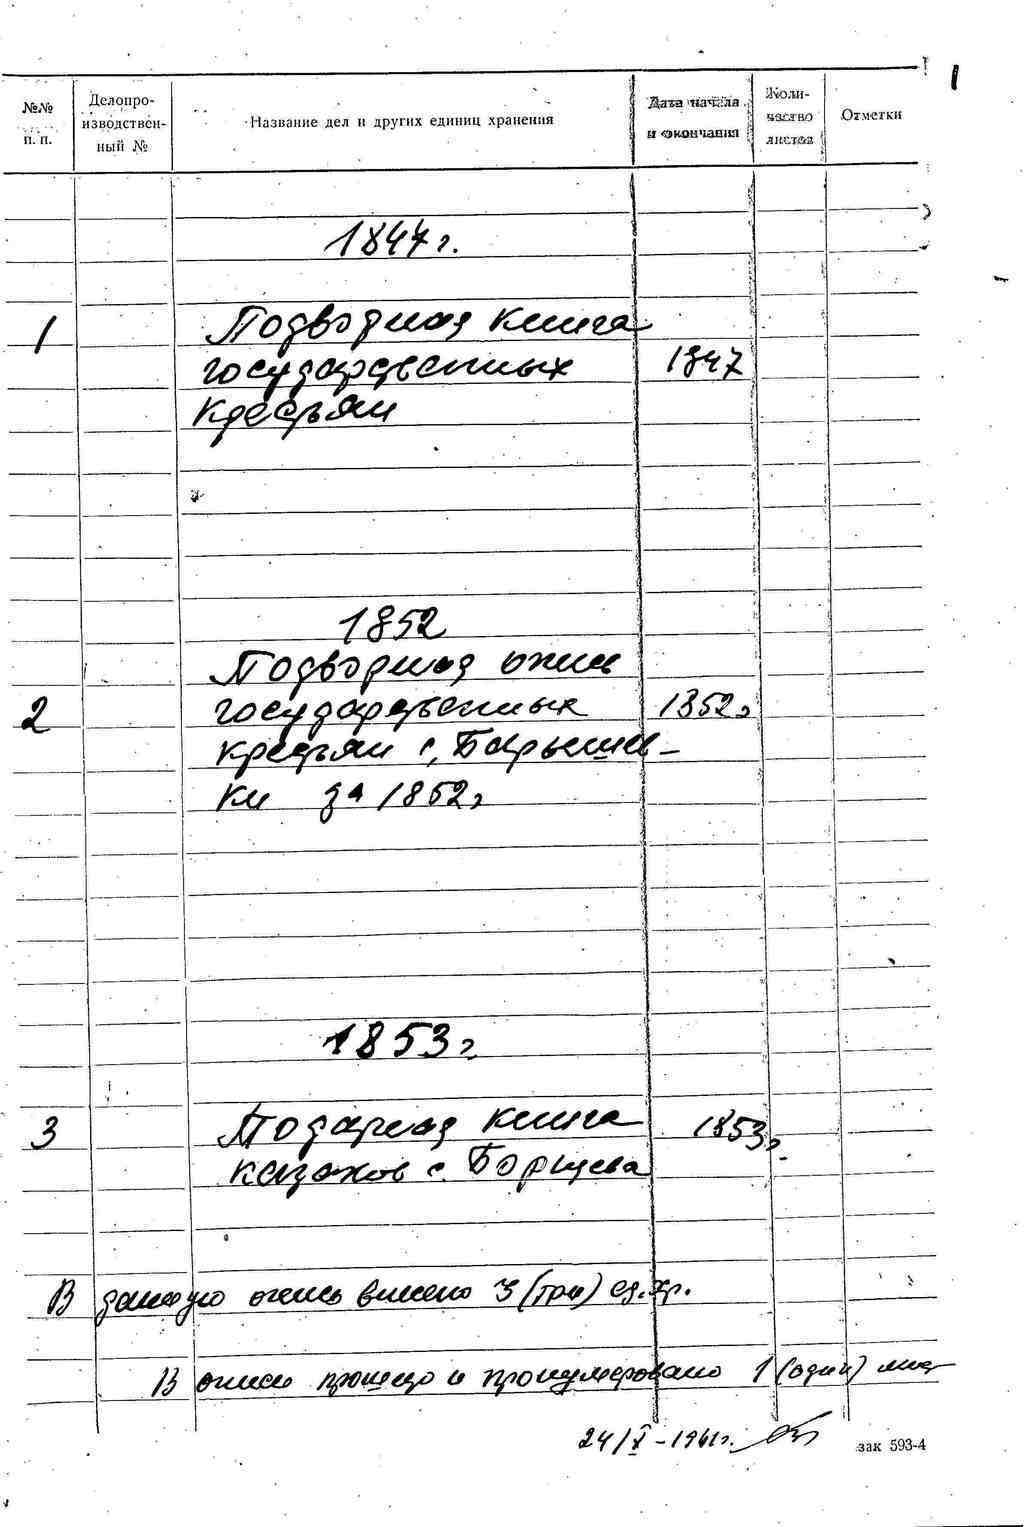 1
№№ п. п.
Делопро-
изводствен-
ный №
Название дел и других единиц хранения
Дата начала
и окончания
Коли-
чество
листов
Отметки
1847 г.
1 Подворная книга
государственных 1847
крестьян
1852
Подворная опись
2 государственных 1852 г
крестьян с. Барышев-
ки за 1852 г
1853 г.
3 Подворная книга 1853 г.
казаков с. Борщева
В данную опись внесено 3 (три) ед. хр.
В описи прошито и пронумеровано 1 (один) лист
24/X - 1961 г.
зак 593-4